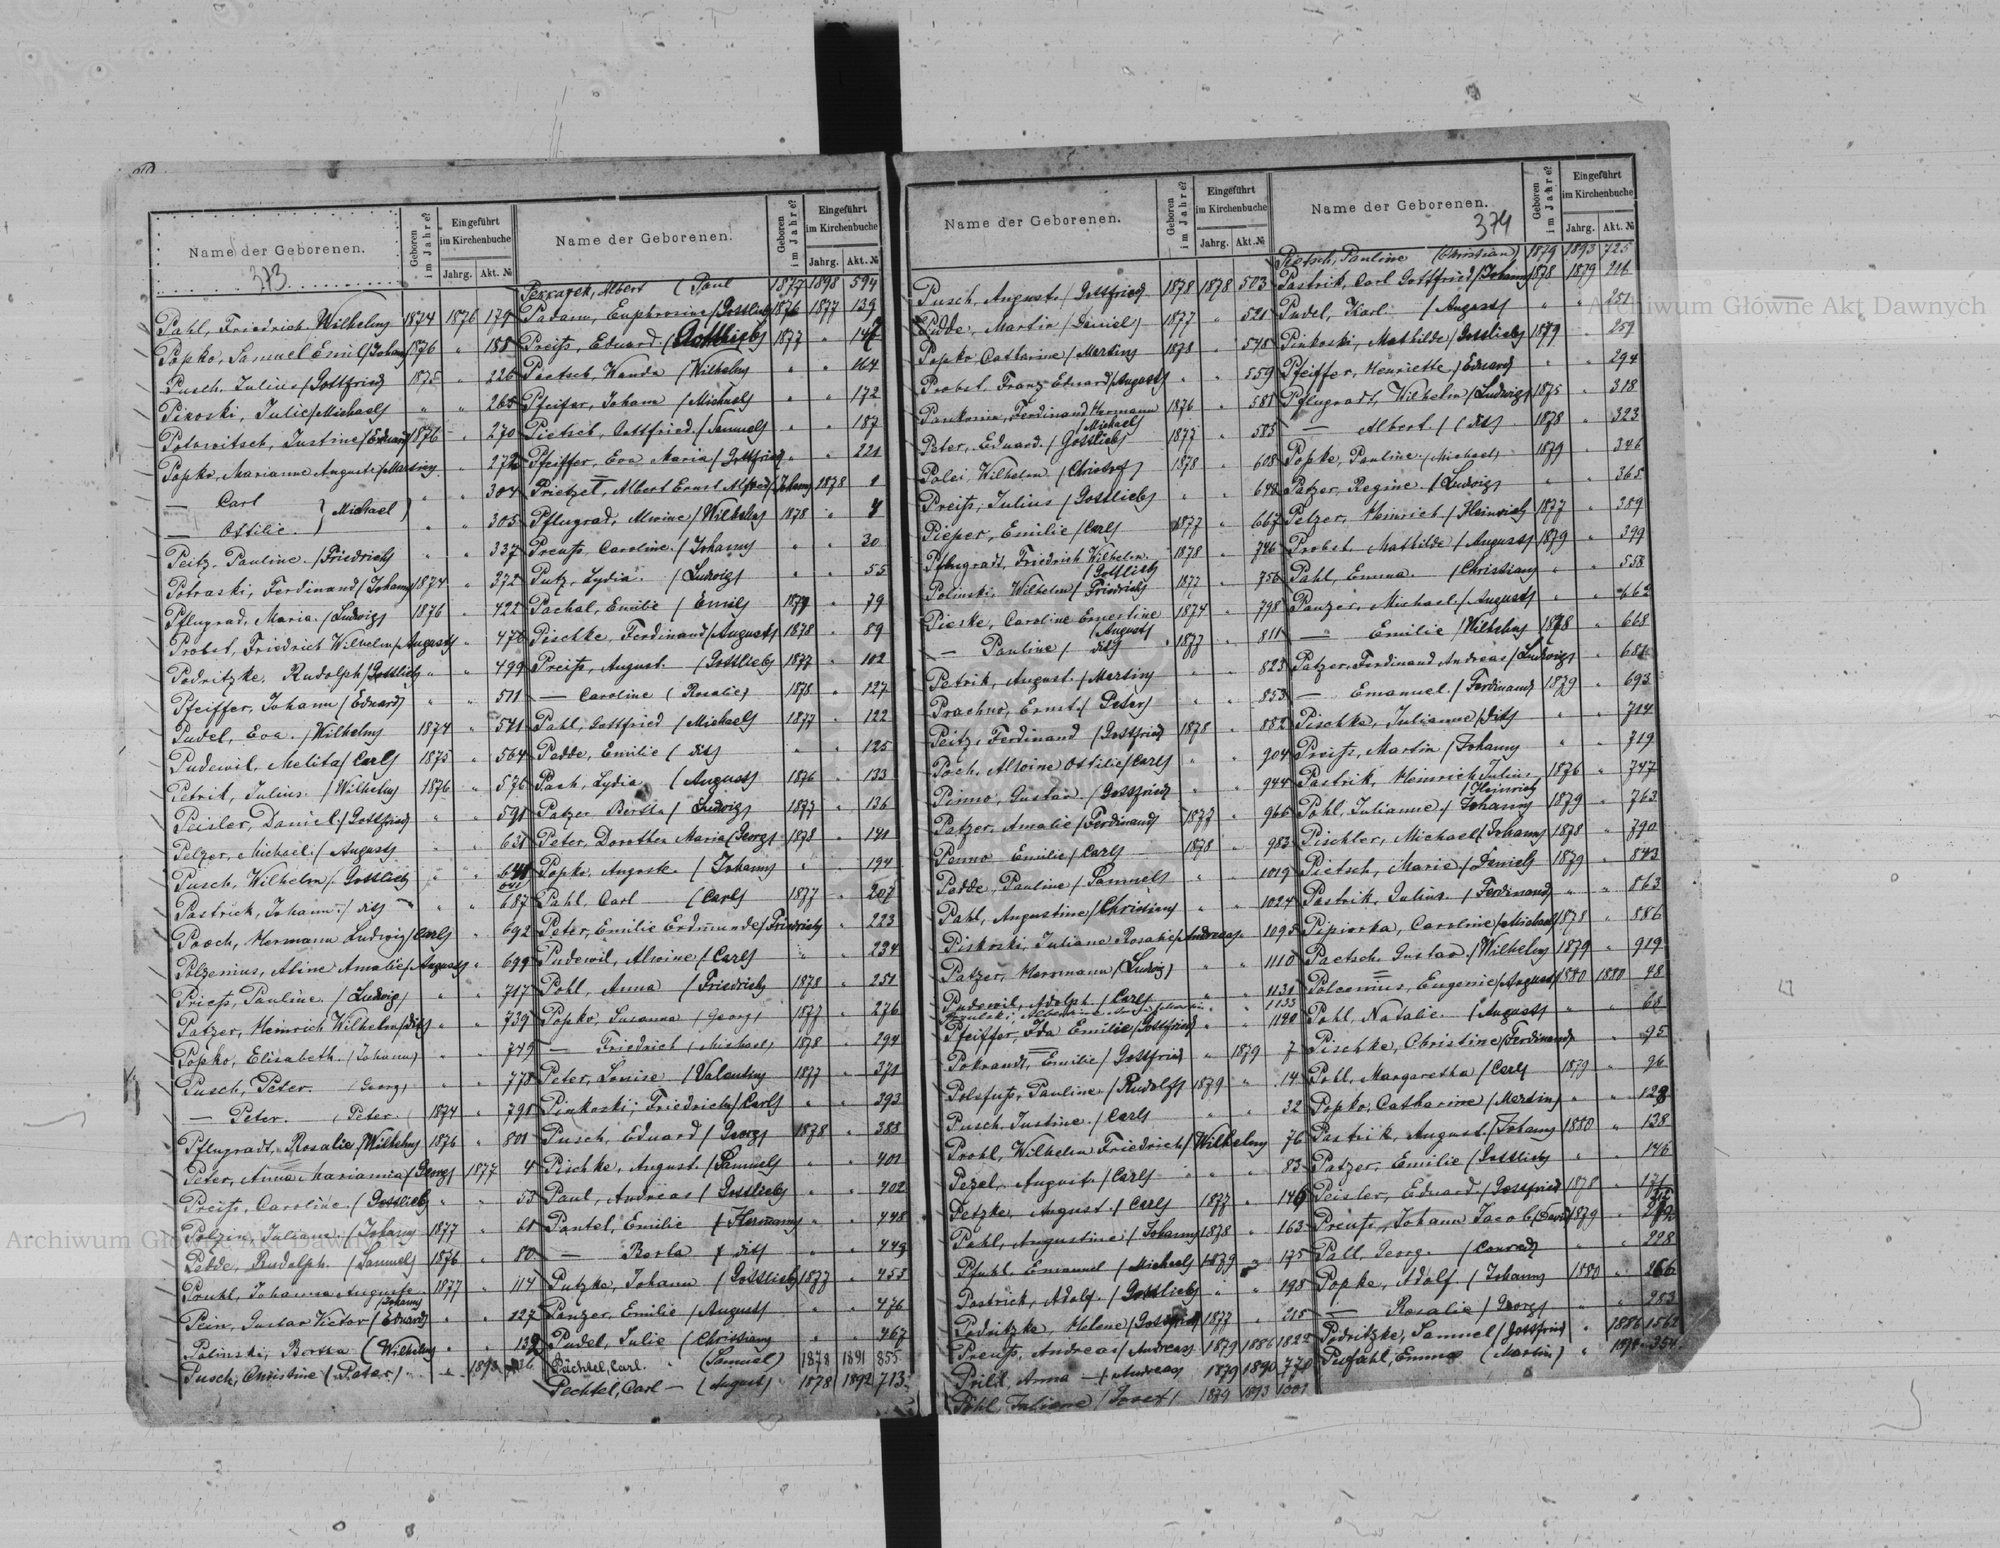 Name der Geborenen.
373
Geboren im Jahre?
Eingeführt im Kirchenbuche
Jahrg. Akt. №
Pahl, Friedrich Wilhelm 1874 1876 179
Popko, Samuel Emil (Johann) 1876 " 188
Pusch, Julius (Gottfried) 1875 " 226
Pixoski, Julie (Michael) " " 265
Potrwitsch, Justine (Eduard) 1876 " 270
Popko, Marianne Auguste (Martin) " " 272
— Carl " " 304
(Michael)
— Ottilie " " 305
Peitz, Pauline (Friedrich) " " 337
Potraski, Ferdinand (Johann) 1874 " 372
Pflugrad, Maria (Ludwig) 1876 " 422
Probst, Friedrich Wilhelm (August) " 476
Podritzke, Rudolph (Gottlieb) " " 499
Pfeiffer, Johann (Eduard) " " 511
Pudel, Eva (Wilhelm) 1874 " 541
Pudewil, Melita (Carl) 1875 " 564
Petrik, Julius (Wilhelm) 1876 " 576
Peisler, Daniel (Gottfried) " " 591
Pelzer, Michael (August) " " 631
Pusch, Wilhelm (Gottlieb) " " 641
Pastrick, Johann (dito) " " 687
Posch, Hermann Ludwig (Carl) " " 692
Polzenius, Aline Amalie (August) " " 699
Priess, Pauline (Ludwig) " " 717
Patzer, Heinrich Wilhelm (dito) " " 739
Popko, Elisabeth (Johann) " " 749
Pusch, Peter (Georg) " " 778
— Peter (Peter) 1874 " 791
Pflugradt, Rosalie (Wilhelm) 1876 " 801
Peter, Anna Marianna (Georg) 1877 4
Preiss, Caroline (Gottlieb) " " 53
Polzin, Juliane (Johann) 1877 " 61
Pedde, Rudolph (Samuel) 1876 " 80
Pruhl, Johanna Auguste 1877 " 114
(Johann)
Pein, Gustav Victor (Eduard) " " 127
Polinski, Bertha (Wilhelm) " "
Pusch, Christine (Peter) " 1893
Name der Geborenen.
Geboren im Jahre?
Eingeführt im Kirchenbuche
Jahrg. Akt. №
Albert (Paul 1877 1898 594
Padam, Euphrosine (Gottlieb) 1876 1877 139
Preiss, Eduard (Gottlieb) 1877 " 142
Paetsch, Wanda (Wilhelm) " " 164
Pfeifer, Johann (Michael) " " 172
Pietsch, Gottfried (Samuel) " " 187
Pfeiffer, Eva Maria (Gottfried) " " 221
Prietzel, Albert Ernst Alfred (Johann) 1878 1
Pflugrad, Alwine (Wilhelm) 1878 " 4
Preuss, Caroline (Johann) " " 30
Putz, Lydia (Ludwig) " " 55
Pachal, Emilie (Emil) 1877 " 79
Pischke, Ferdinand (August) 1878 " 89
Preiss, August (Gottlieb) 1877 " 102
— Caroline (Rosalie) 1878 " 127
Pahl, Gottfried (Michael) 1877 " 122
Pedde, Emilie (dito) " " 125
Posh, Lydia (August) 1876 " 133
Patzer, Bertha (Ludwig) 1877 " 136
Peter, Dorothea Maria (Georg) 1878 " 141
Popko, Auguste (Johann) " " 194
Pahl, Carl (Carl) 1877 " 207
Peter, Emilie Erdmunde (Friedrich) " 223
Pudewil, Alwine (Carl) " " 234
Pohl, Anna (Friedrich) 1878 " 251
Popko, Susanna (Georg) 1877 " 276
— Friedrich (Michael) 1878 " 294
Peter, Louise (Valentin) 1877 " 371
Pinkoski, Friedrich (Carl) " " 393
Pusch, Eduard (Georg) 1878 " 383
Pischke, August (Samuel) " " 401
Paul, Andreas (Gottlieb) " " 402
Pantel, Emilie (Hermann) " " 448
— Berta (dito) " " 449
Putzke, Johann (Gottlieb) 1877 " 453
Panzer, Emilie (August) " " 476
Pudel, Julie (Christian) " " 467
Pächtel, Carl (Samuel) 1878 1891 855
Pechtel, Carl — (August) 1878 1892 713
Name der Geborenen.
Geboren im Jahre?
Eingeführt im Kirchenbuche
Jahrg. Akt. №
Pusch, August (Gottfried) 1878 1878 503
Pedde, Martin (Daniel) 1877 " 521
Popko, Catharine (Martin) 1878 " 548
Probst, Franz Eduard (August) " " 559
Pankonin, Ferdinand Hermann 1876 " 581
(Michael)
Peter, Eduard (Gottlieb) 1877 " 585
Polei, Wilhelm (Christof) 1878 " 608
Preiss, Julius (Gottlieb) " " 648
Pieper, Emilie (Carl) 1877 " 667
Pflugradt, Friedrich Wilhelm 1878 " 746
(Gottlieb)
Polinski, Wilhelm (Friedrich) 1877 " 756
Pieske, Caroline Ernestine 1874 " 798
(August)
— Pauline (dito) 1877 " 811
Petrik, August (Martin) " " 823
Prochno, Ernst (Peter) " " 853
Peitz, Ferdinand (Gottfried) 1878 " 882
Poch, Alwine Ottilie (Carl) " " 904
Pinno, Gustav (Gottfried) " " 944
Patzer, Amalie (Ferdinand) 1877 " 966
Penno, Emilie (Carl) 1878 " 983
Pedde, Pauline (Samuel) " " 1019
Pahl, Augustine (Christian) " " 1024
Piskorski, Juliane Rosalie (Andreas) " 1095
Patzer, Herrmann (Ludwig) " " 1110
Pudewil, Adolph (Carl) " " 1131
1133
Pfeiffer, Ida Emilie (Gottfried) " " 1190
Pokrandt, Emilie (Gottfried) " 1879 7
Polsfuss, Pauline (Rudolf) 1879 " 14
Pusch, Justine (Carl) " " 32
Prohl, Wilhelm Friedrich (Wilhelm) 76
Pezel, August (Carl) " " 83
Petzke, August (Carl) 1877 " 146
Pahl, Augustine (Johann) 1878 " 163
Pfahl, Emanuel (Michael) 1879 " 175
Postrick, Adolf (Gottlieb) " " 198
Podritzke, Helene (Gottfried) 1877 " 215
Preuss, Andreas (Andreas) 1879 1886 1822
Prill, Anna — (Andreas) 1879 1890 770
Pohl, Juliane (Josef) 1879 1893 1001
Name der Geborenen.
374
Geboren im Jahre?
Eingeführt im Kirchenbuche
Jahrg. Akt. №
Pietsch, Pauline (Christian) 1879 1893 725
Pastrik, Carl Gottfried (Johann) 1878 1879 216
Pudel, Karl (August) " " 251
Pinkoski, Mathilde (Gottlieb) 1879 " 259
Pfeiffer, Henriette (Eduard) " " 294
Pflugradt, Wilhelm (Ludwig) 1875 " 318
— Albert (dito) 1878 " 323
Popko, Pauline (Michael) 1879 " 346
Patzer, Regine (Ludwig) " " 365
Pelzer, Heinrich (Heinrich) 1877 " 389
Probst, Mathilde (August) 1879 " 399
Pahl, Emma (Christian) " " 558
Panzer, Michael (August) " " 662
— Emilie (Wilhelm) 1878 " 668
Patzer, Ferdinand Andreas (Ludwig) " 681
— Emanuel (Ferdinand) 1879 " 693
Pischke, Julianne (dito) " " 714
Preiss, Martin (Johann) " " 719
Pastrik, Heinrich Julius 1876 " 747
(Heinrich)
Pohl, Julianne (Johann) 1879 " 763
Pischler, Michael (Johann) 1878 " 790
Pietsch, Marie (Daniel) 1879 " 843
Pastrik, Julius (Ferdinand) " " 863
Pipiorka, Caroline (Michael) 1878 " 886
Paetsch, Gustav (Wilhelm) 1879 " 919
Polcenius, Eugenie (August) 1880 1880 48
Pohl, Natalie (August) " " 68
Pischke, Christine (Ferdinand) " " 95
Pohl, Margaretha (Carl) 1879 " 96
Popko, Catharine (Martin) " " 128
Pastrik, August (Johann) 1880 " 138
Patzer, Emilie (Gottlieb) " " 146
Peisler, Eduard (Gottfried) 1878 " 171
Preuss, Johann Jacob (David) 1879 "
Pall, George (Conrad) " " 228
Popke, Adolf (Johann) 1880 " 266
— Rosalie (Georg) " " 283
Podritzke, Samuel (Gottfried) " 1886 1562
Pufahl, Emma (Martin) "
Archiwum Główne Akt Dawnych
Archiwum Główne Akt Dawnych